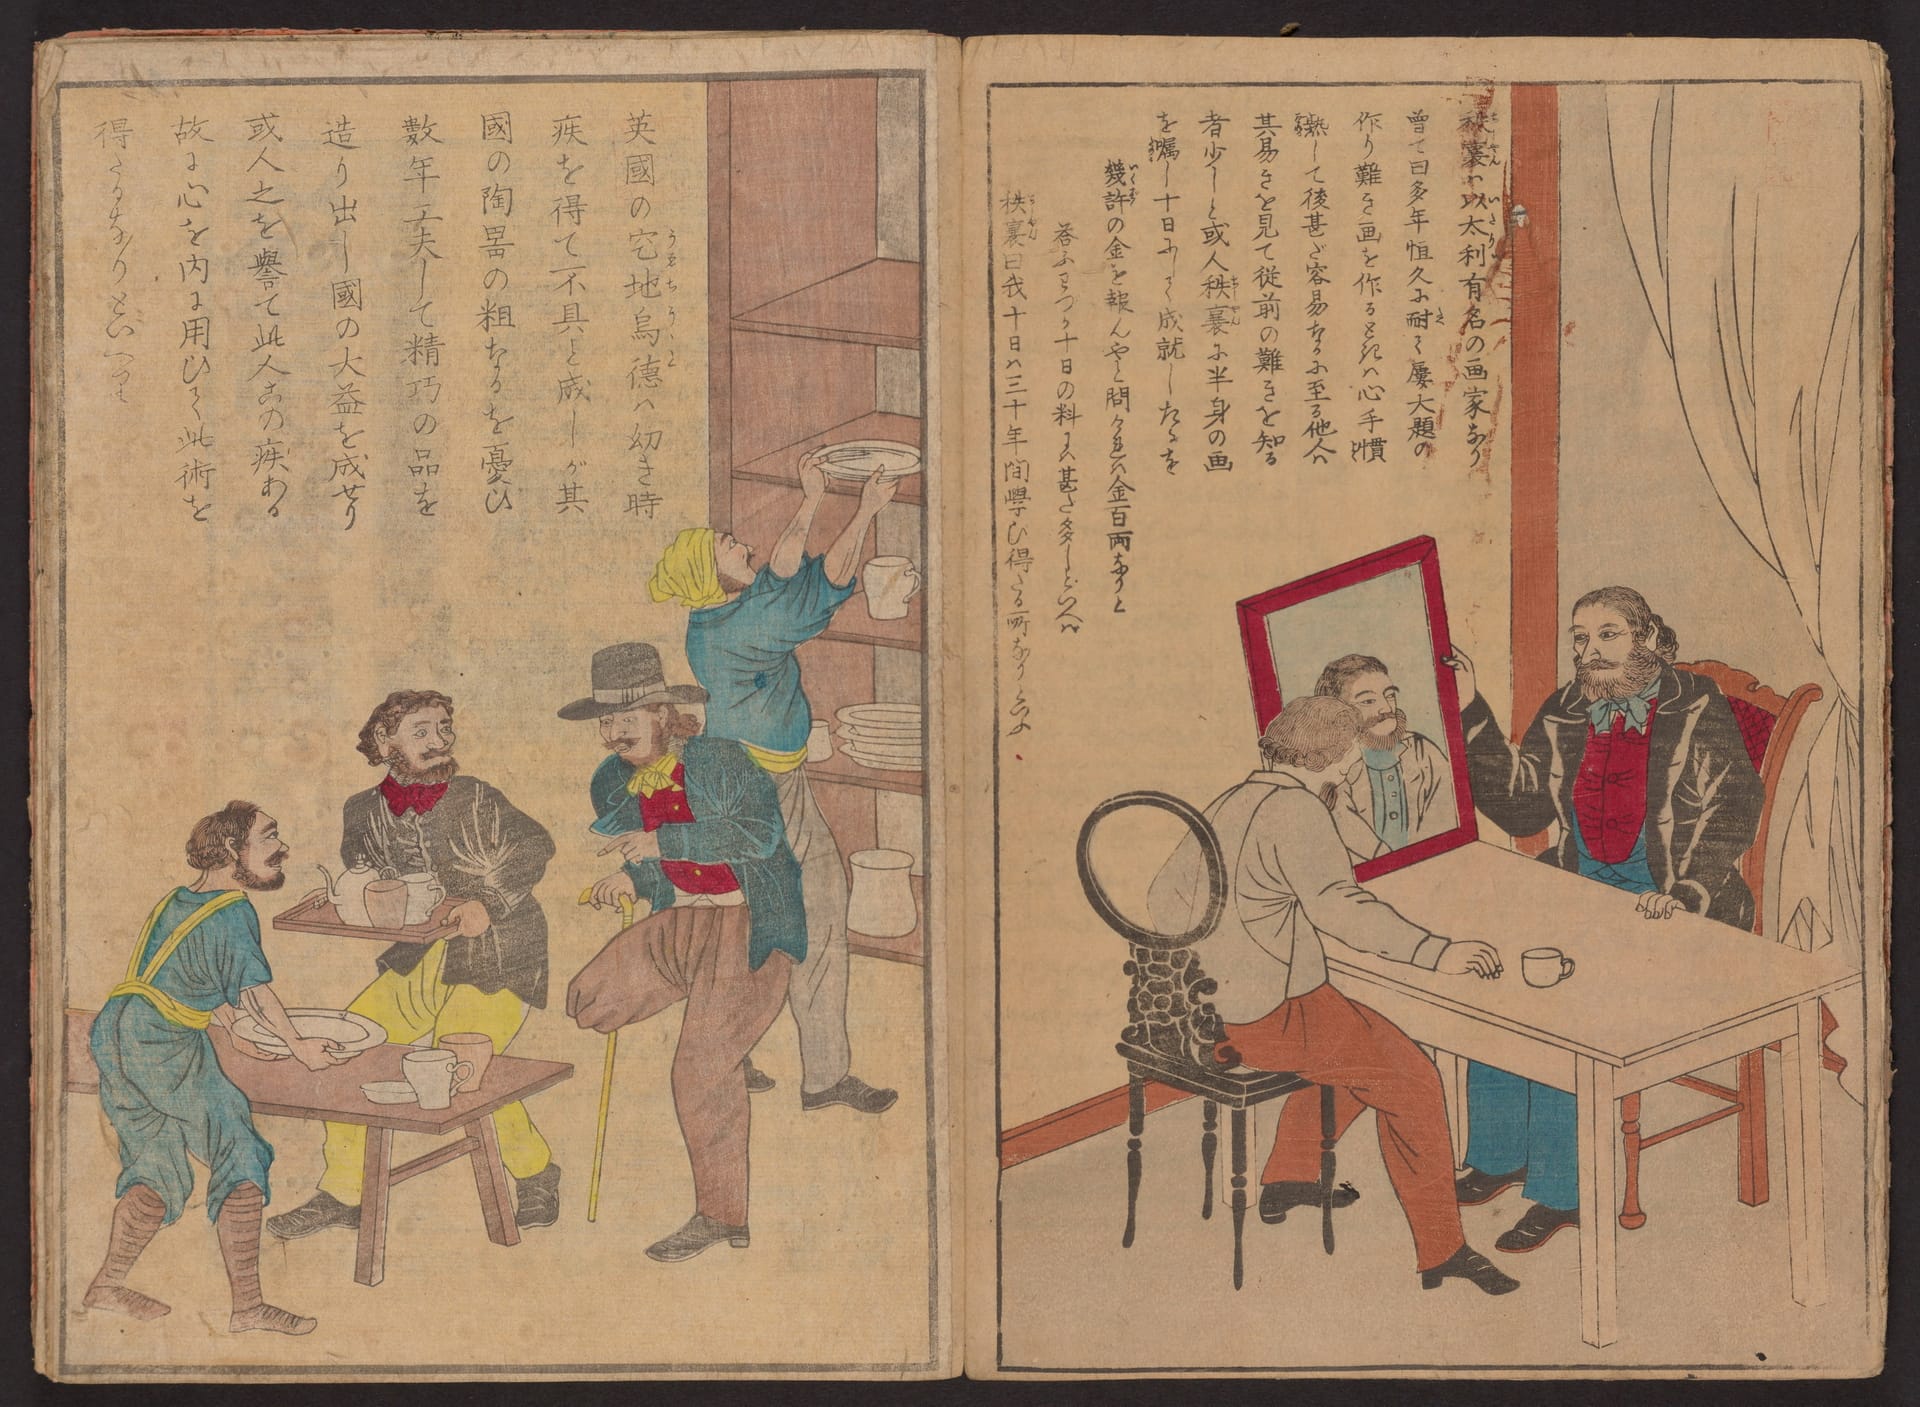 秩裏ハ以太利有名の画家なり
曽て曰多年恒久に耐て屡大題の
作り難き画を作るときハ心手慣
熟して後甚だ容易なるに至る他人ハ
其易きを見て従前の難きを知る
者少しと或人秩裏に半身の画
を嘱し十日にして成就したるを
幾許の金を報んやと問けれハ金百両なりと
答ふわつか十日の料にハ甚た多しといへハ
秩裏曰我十日ハ三十年間學ひ得たる所なりと云ふ
英國の空地烏徳ハ幼き時
疾を得て不具と成しが其
國の陶噐の粗なるを憂ひ
數年工夫して精巧の品を
造り出し國の大益を成せり
或人之を譽て此人この疾ある
故に心を内に用ひて此術を
得たるなりといへり